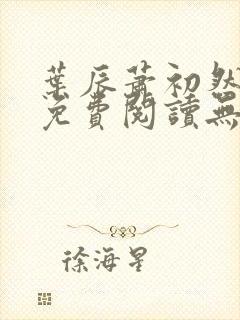 葉辰蕭初然
免費閱讀無
徐海星